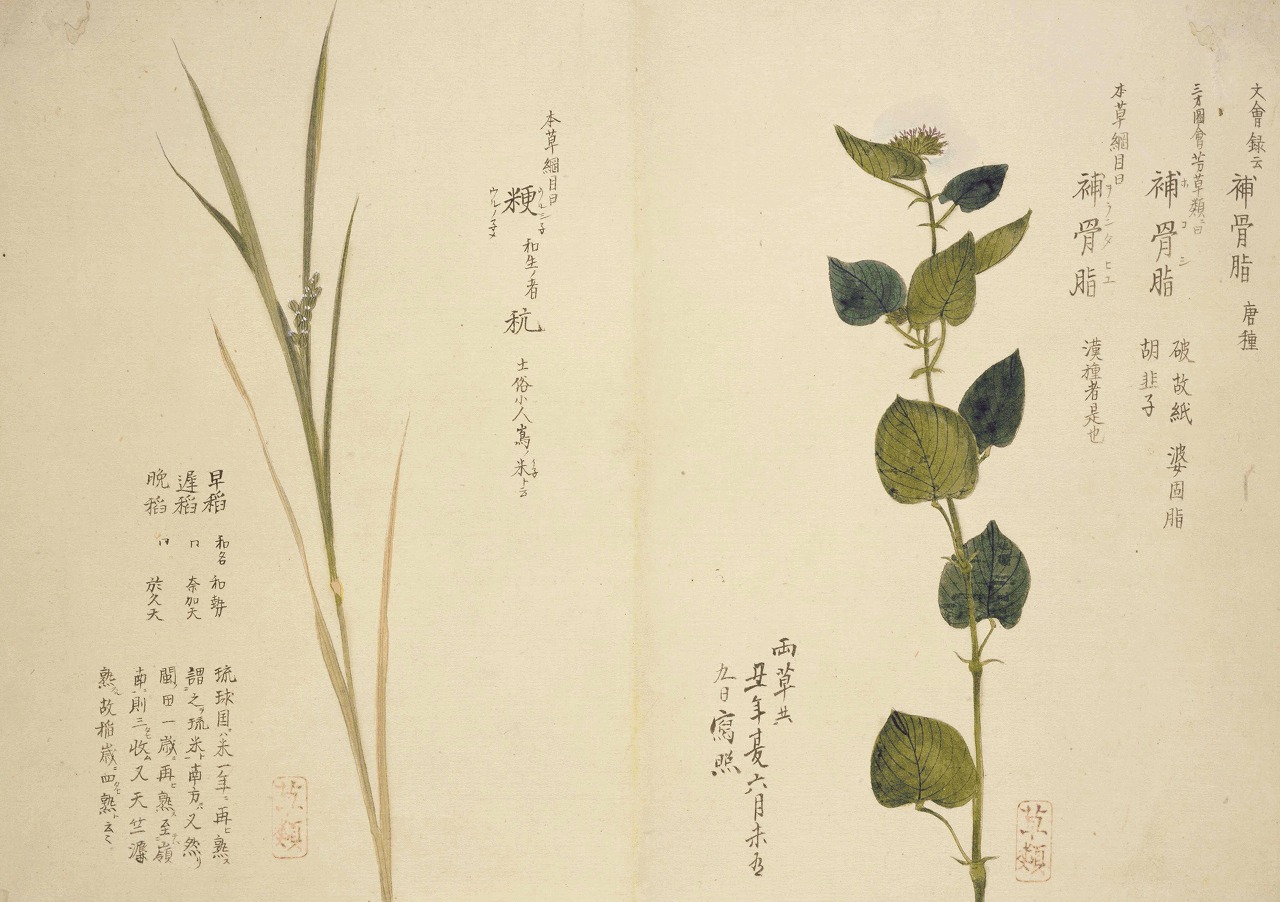 文會録云
補骨脂 唐種
三才圖會芳草類ニ曰
補骨脂 破故紙 婆固脂
ホコシ
胡韭子
本草綱目曰
補骨脂 漢種者是也
ヲランタヒユ
両草共
丑年夏六月末
九日寫照
草類
本草綱目曰
粳 和生ノ者 秔 土俗小人嶌ノ米ト云
ウルシ子
ウルノ子
早稲 和名 和勢
遅稲 口 奈加天
晩稲 口 於久天
琉球国ハ米一年ニ再ヒ熟ス
謂之ヲ琉米ト南方ハ又然リ
閩田一歳ニ再ヒ熟ス至嶺
南ニ則三タヒ收ム又天竺
熟ス故稲歳ニ四タヒ熟スト云々
草類